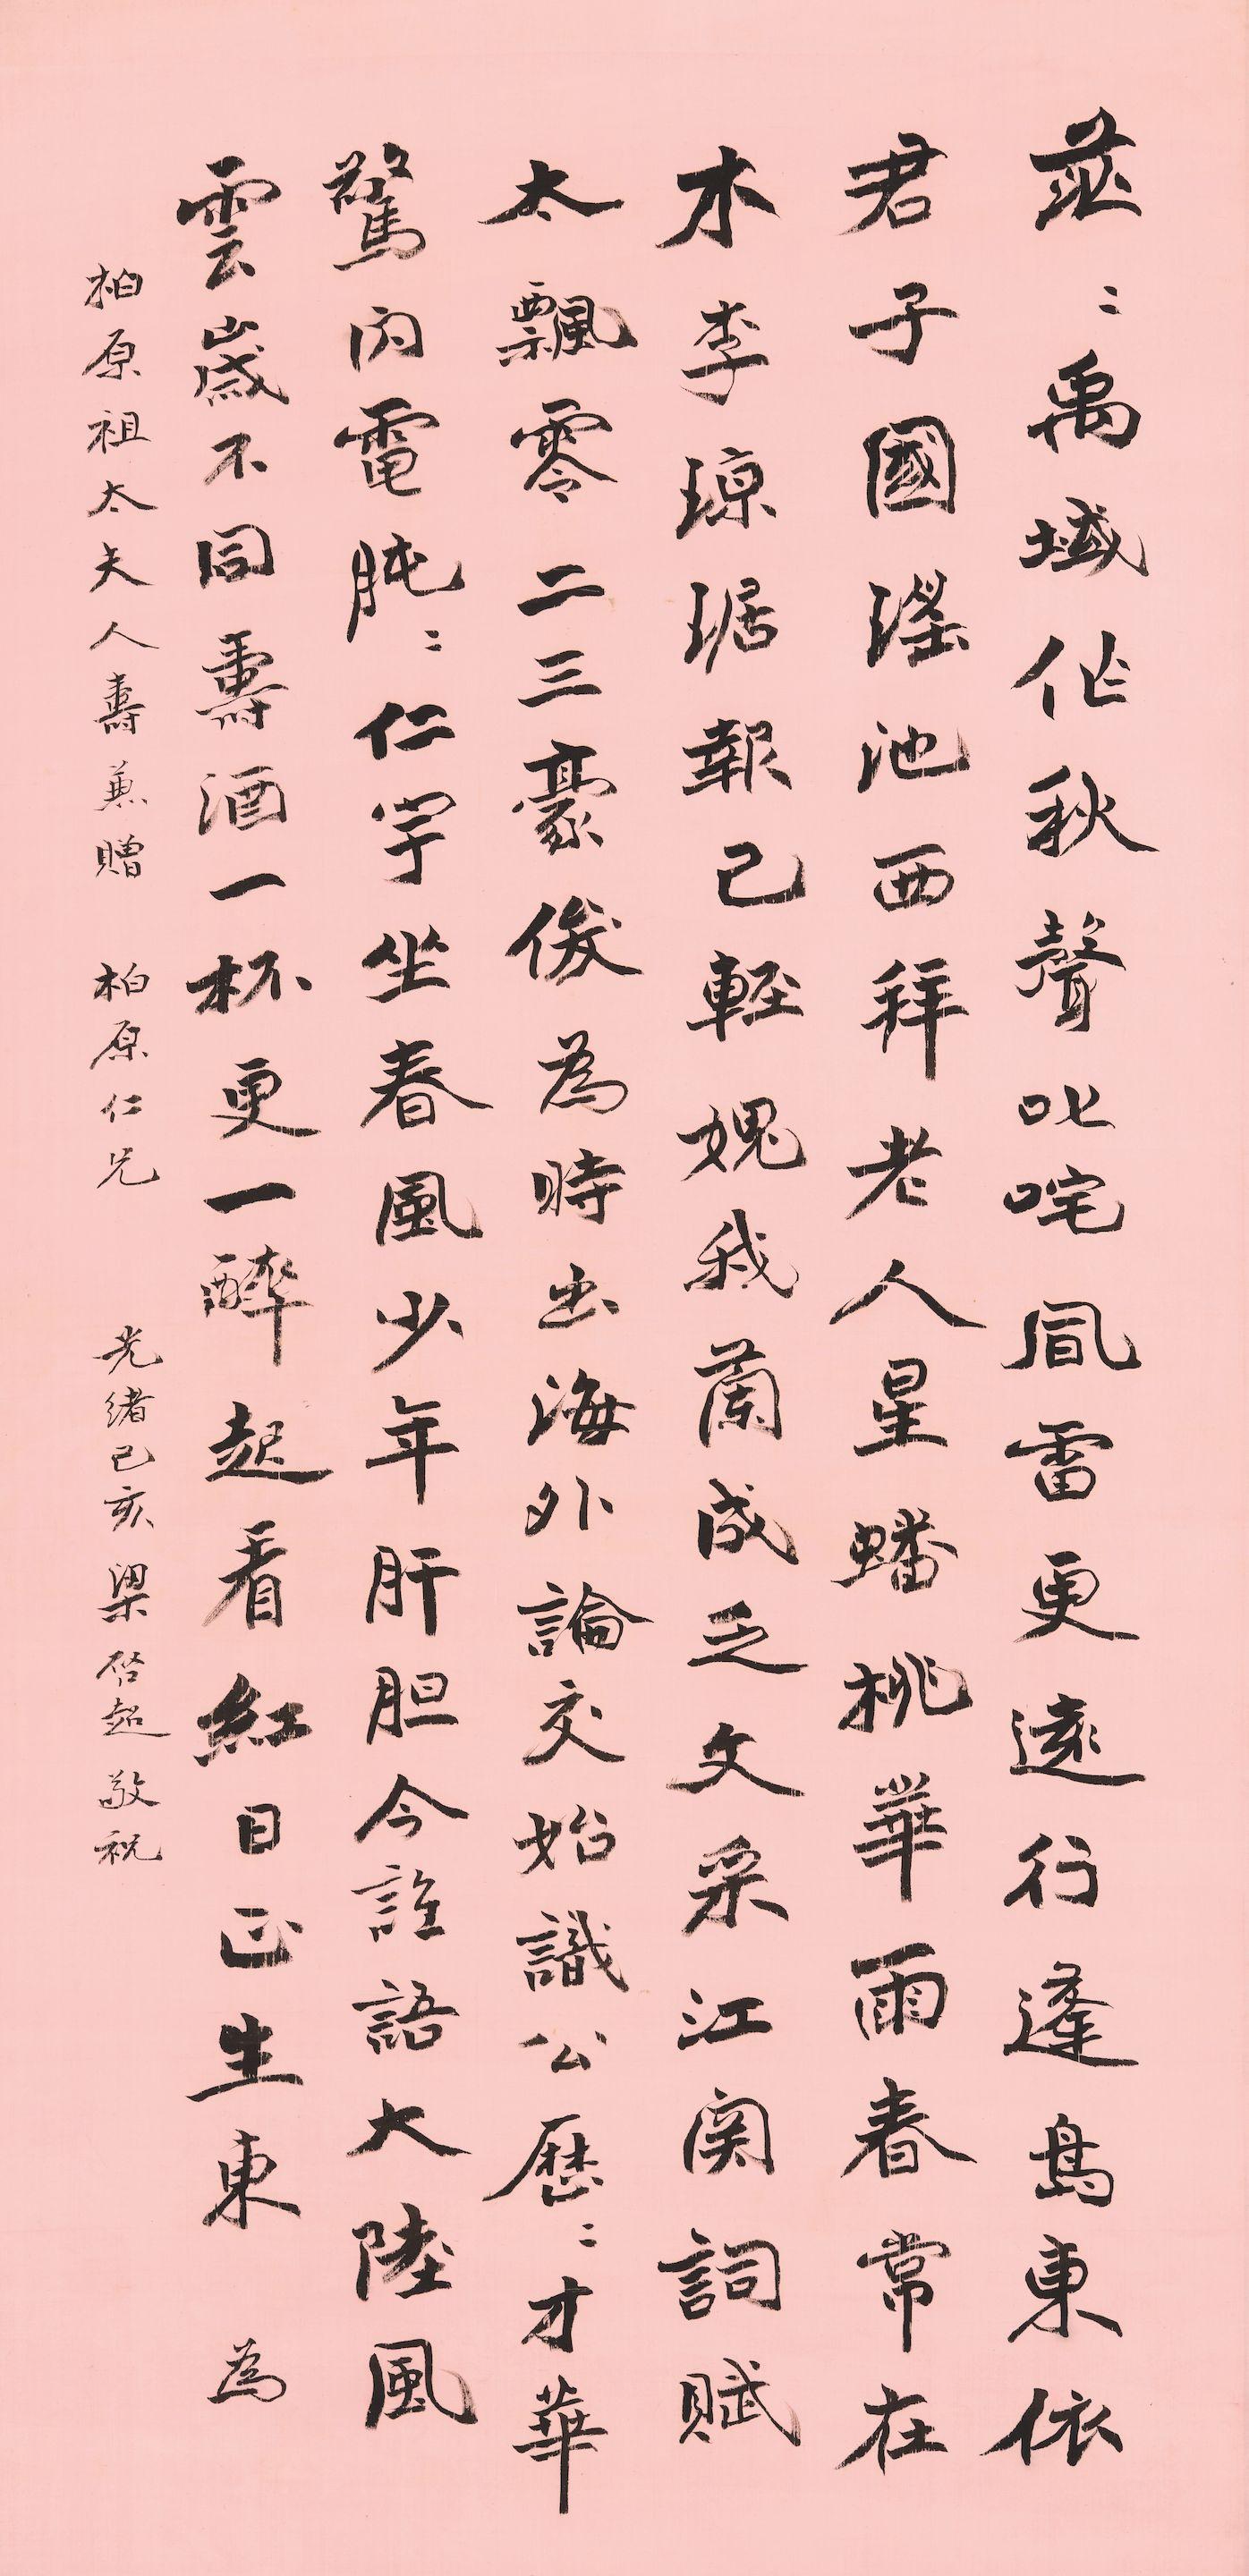 茫〻禹域作秋聲叱咤風雷更遠行蓬島東依
君子國瑤池西拜老人星蟠桃華雨春常在
木李瓊琚報已輕媿我蘭成乏文采江関詞賦
太飄零二三豪俊為時出海外論交始識公歷〻才華
驚閃電肫〻仁宇坐春風少年肝胆今誰語大陸風
雲歲不同壽酒一杯更一醉起看紅日正生東 為
柏原祖太夫人壽兼贈 柏原仁兄 光緒己亥梁啓超敬祝